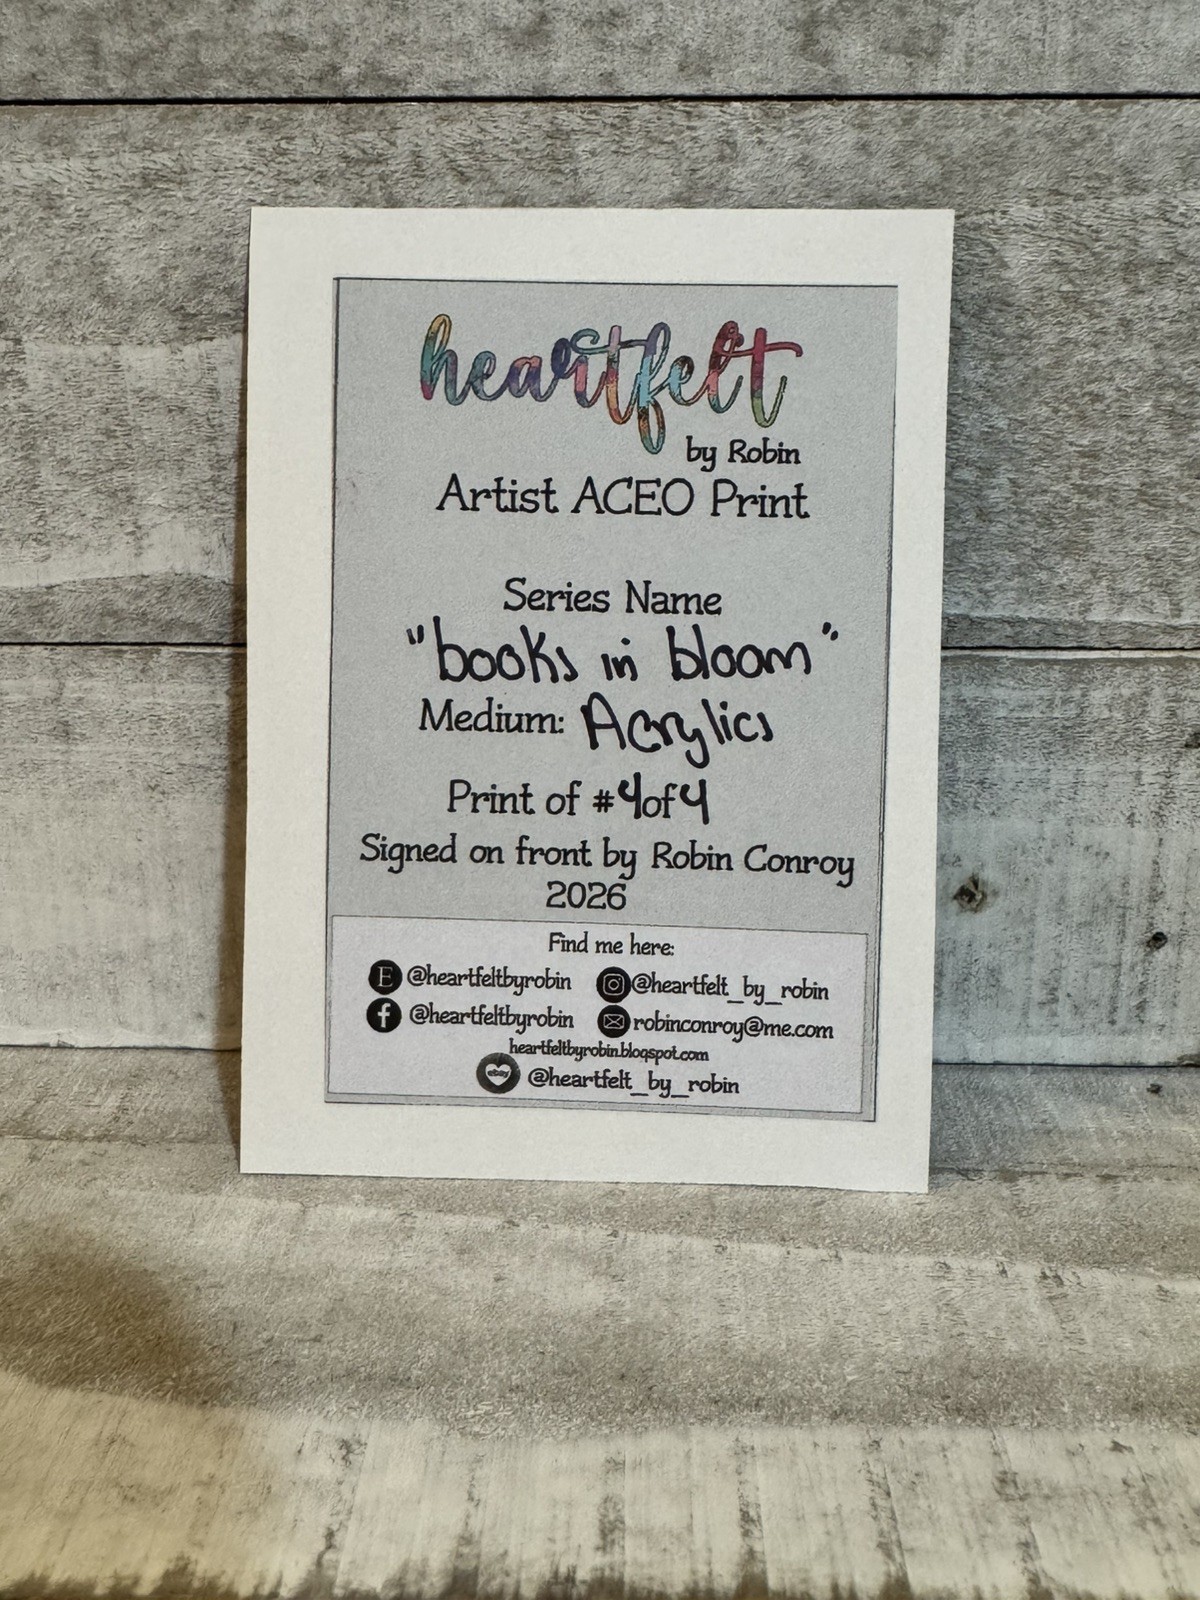 heartfelt
by Robin
Artist ACEO Print
Series Name
"books in bloom"
Medium: Acrylics
Print of #4of4
Signed on front by Robin Conroy
2026
Find me here:
E @heartfeltbyrobin @heartfelt_by_robin
f @heartfeltbyrobin robinconroy@me.com
heartfeltbyrobin.blogspot.com
ebay @heartfelt_by_robin